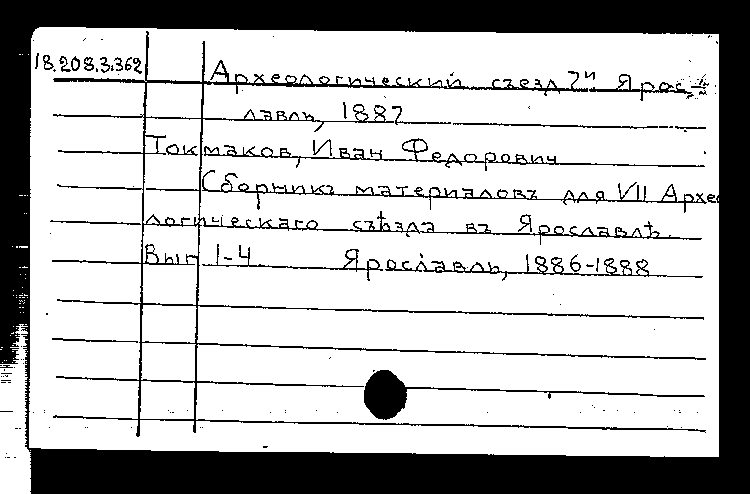 18.208.3.362
Археологический съезд 7й. Ярос-
лавль, 1887
Токмаков, Иван Федорович
Сборникъ матерiаловъ для VII Архео
логическаго съѣзда въ Ярославлѣ.
Вып 1-4 Ярославль, 1886-1888